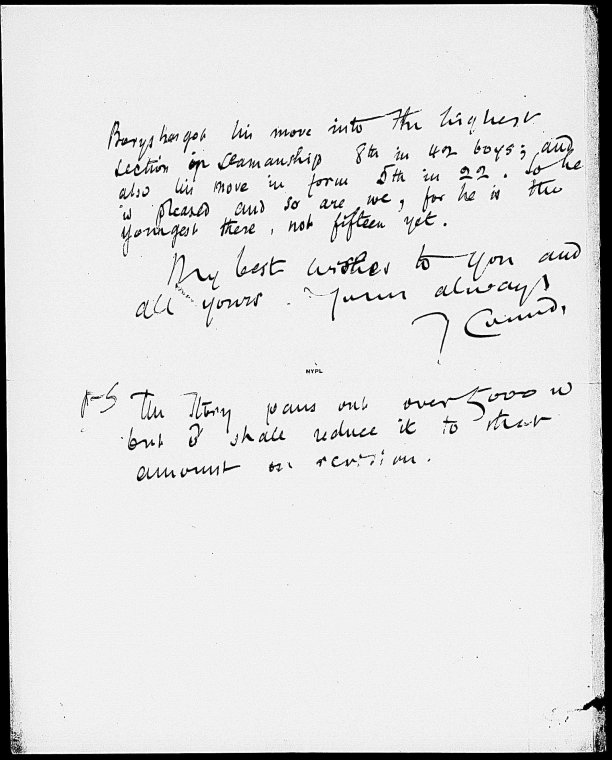 Borys has got his move into the highest
section in seamanship 8th in 42 boys; and
also his move in form 5th in 22. So he
is pleased and so are we, for he is the
youngest there, not fifteen yet.
My best wishes to you and
all yours. Yours always
J Conrad.
NYPL
PS The story pans out over 5000 w
but I shall reduce it to that
amount on revision.